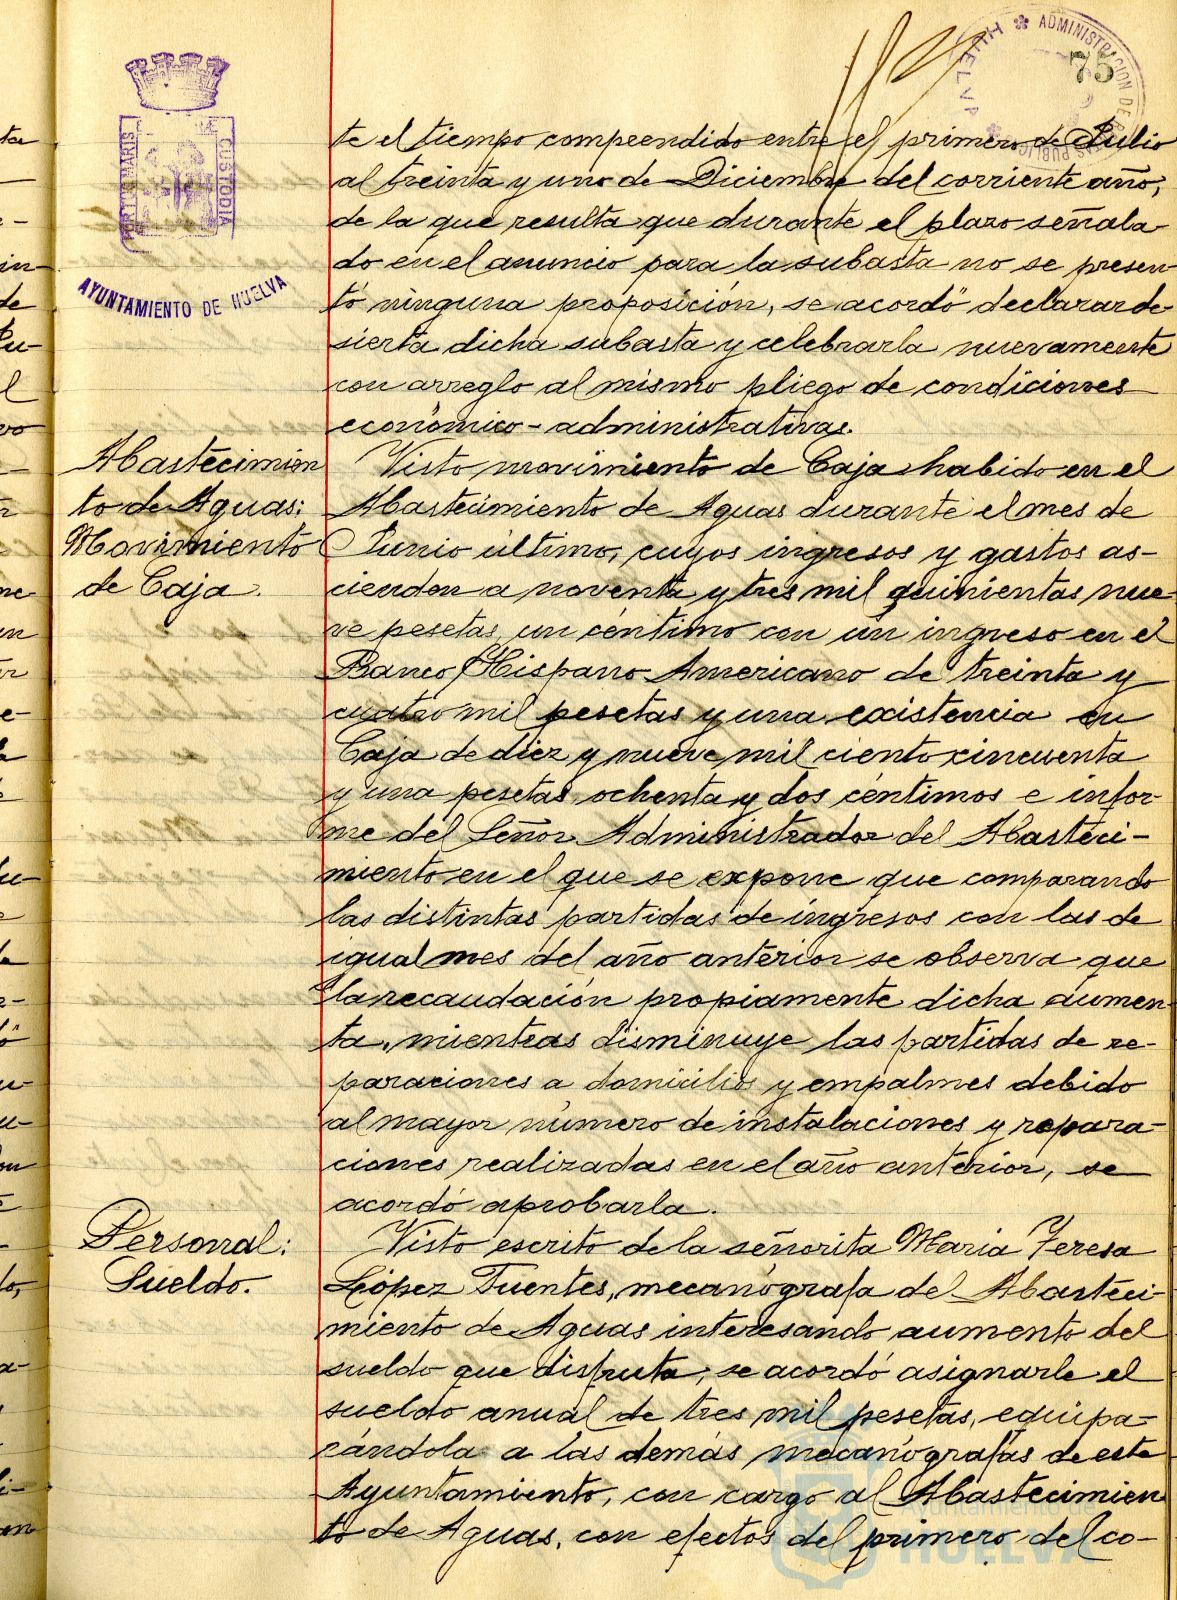 75
HUELVA * ADMINISTRACION DE
PORTUS MARIS CUSTODIA
AYUNTAMIENTO DE HUELVA
te el tiempo comprendido entre el primero de Julio
al treinta y uno de Diciembre del corriente año,
de la que resulta que durante el plazo señala-
do en el anuncio para la subasta no se presen
tó ninguna proposición, se acordó declarar de
sierta dicha subasta y celebrarla nuevamente
con arreglo al mismo pliego de condiciones
económico-administrativas.
Abastecimien
to de Aguas:
Movimiento
de Caja.
Visto movimiento de Caja habido en el
Abastecimiento de Aguas durante el mes de
Junio último, cuyos ingresos y gastos as-
cienden a noventa y tres mil quinientas nue-
ve pesetas un céntimo con un ingreso en el
Banco Hispano Americano de treinta y
cuatro mil pesetas y una existencia en
Caja de diez y nueve mil ciento cincuenta
y una pesetas ochenta y dos céntimos e infor-
me del Señor Administrador del Abasteci-
miento en el que se expone que comparando
las distintas partidas de ingresos con las de
igual mes del año anterior se observa que
la recaudación propiamente dicha aumen
ta, mientras disminuye las partidas de re-
paraciones a domicilios y empalmes debido
al mayor número de instalaciones y repara-
ciones realizadas en el año anterior, se
acordó aprobarla.
Personal:
Sueldo.
Visto escrito de la señorita Maria Teresa
López Fuentes, mecanógrafa del Abasteci-
miento de Aguas interesando aumento del
sueldo que disfruta, se acordó asignarle el
sueldo anual de tres mil pesetas, equipa-
rándola a las demás mecanógrafas de este
Ayuntamiento, con cargo al Abastecimien
to de Aguas, con efectos del primero del co-
Ayuntamiento de
HUELVA